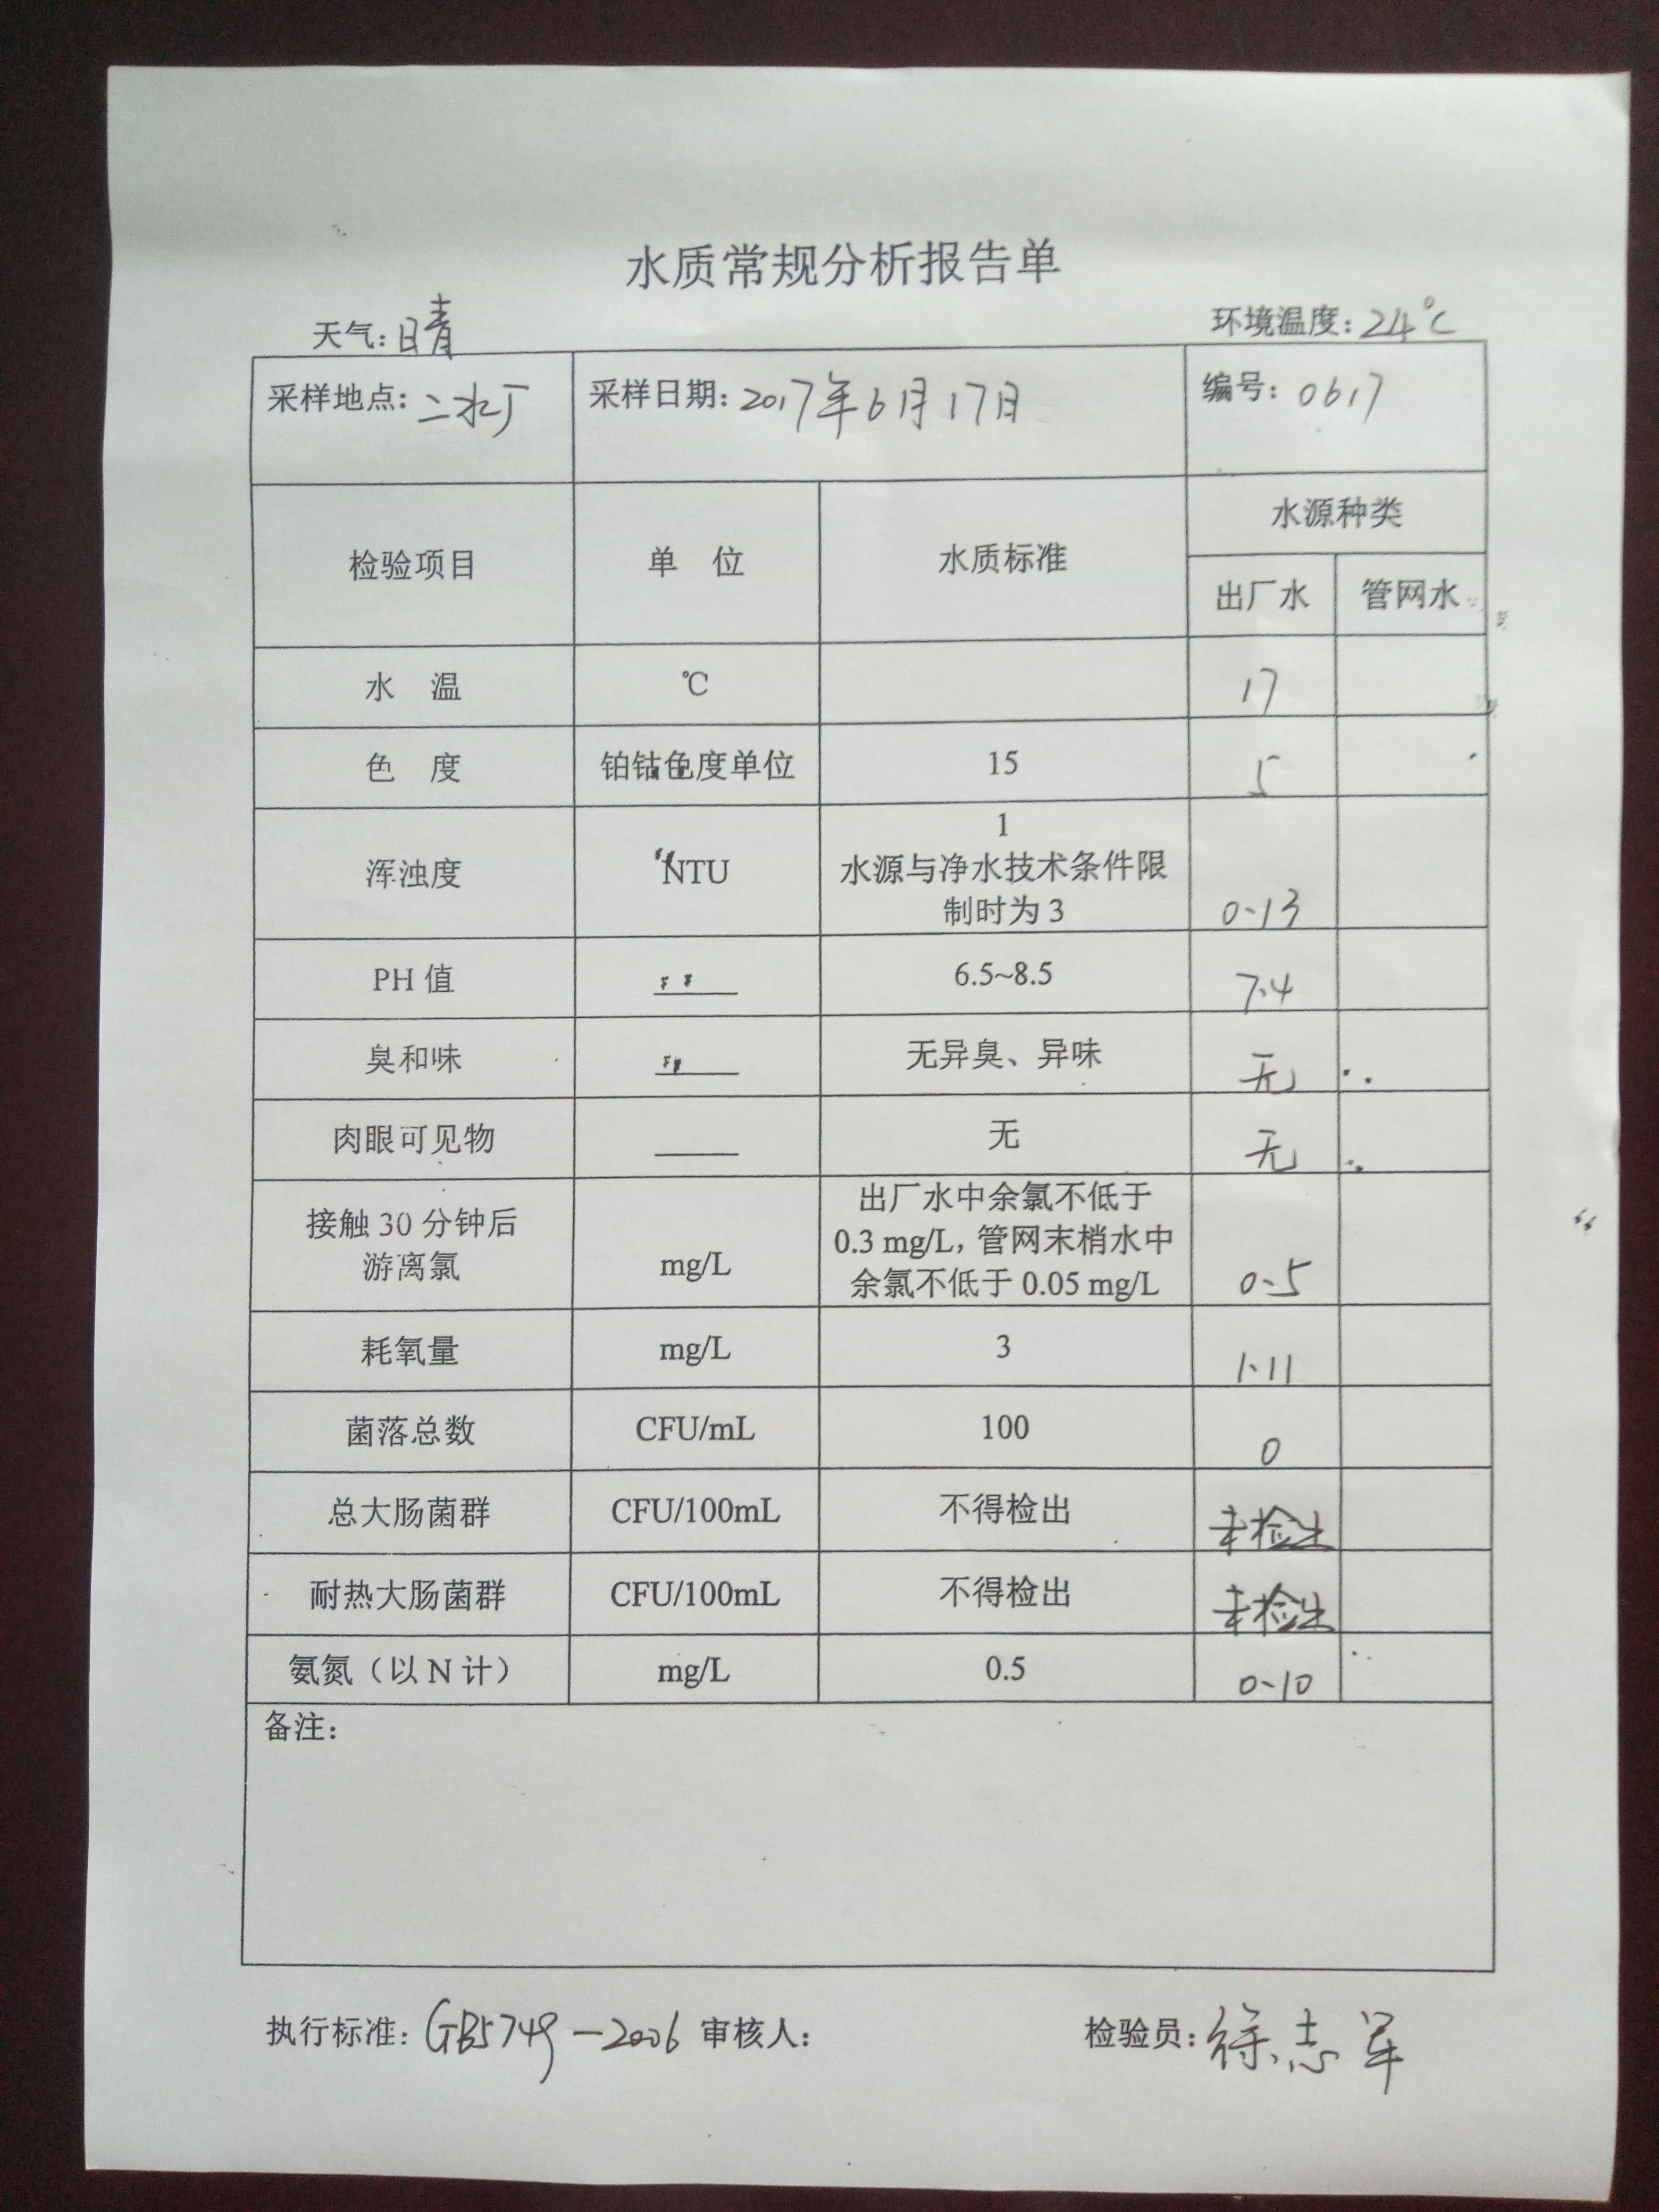 水质常规分析报告单
天气：晴 环境温度：24℃
采样地点：二水厂 采样日期：2017年6月17日 编号：0617
检验项目 单 位 水质标准 水源种类
出厂水 管网水
水 温 ℃ 17
色 度 铂钴色度单位 15 5
浑浊度 NTU 1
水源与净水技术条件限
制时为 3
0.13
PH 值 —— 6.5~8.5 7.4
臭和味 —— 无异臭、异味 无
肉眼可见物 —— 无 无
接触 30 分钟后
游离氯
mg/L
出厂水中余氯不低于
0.3 mg/L，管网末梢水中
余氯不低于 0.05 mg/L
0.5
耗氧量 mg/L 3 1.11
菌落总数 CFU/mL 100 0
总大肠菌群 CFU/100mL 不得检出 未检出
耐热大肠菌群 CFU/100mL 不得检出 未检出
氨氮（以 N 计） mg/L 0.5 0.10
备注：
执行标准：GB5749-2006 审核人： 检验员：徐志军